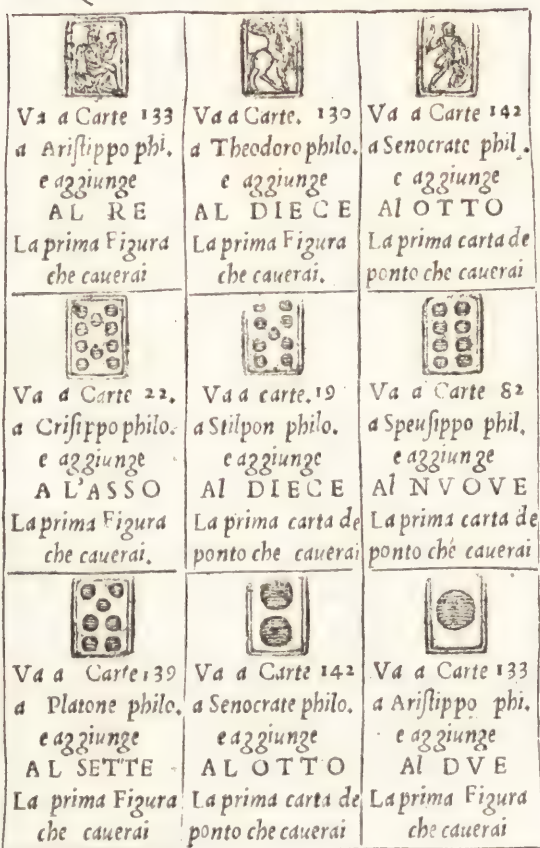 Va a Carte 133
a Ariſtippo phi.
e aggiunge
AL RE
La prima Figura
che cauerai
Va a Carte. 130
a Theodoro philo.
e aggiunge
AL DIECE
La prima Figura
che cauerai.
Va a Carte 142
a Senocrate phil.
e aggiunge
Al OTTO
La prima carta de
ponto che cauerai
Va a Carte 22.
a Criſippo philo.
e aggiunge
A L'ASSO
La prima Figura
che cauerai.
Va a carte. 19
a Stilpon philo.
e aggiunge
Al DIECE
La prima carta de
ponto che cauerai
Va a Carte 82
a Speuſippo phil.
e aggiunge
Al NVOVE
La prima carta de
ponto che cauerai
Va a Carte 139
a Platone philo.
e aggiunge
AL SETTE
La prima Figura
che cauerai
Va a Carte 142
a Senocrate philo.
e aggiunge
AL OTTO
La prima carta de
ponto che cauerai
Va a Carte 133
a Ariſtippo phi.
e aggiunge
Al DVE
La prima Figura
che cauerai